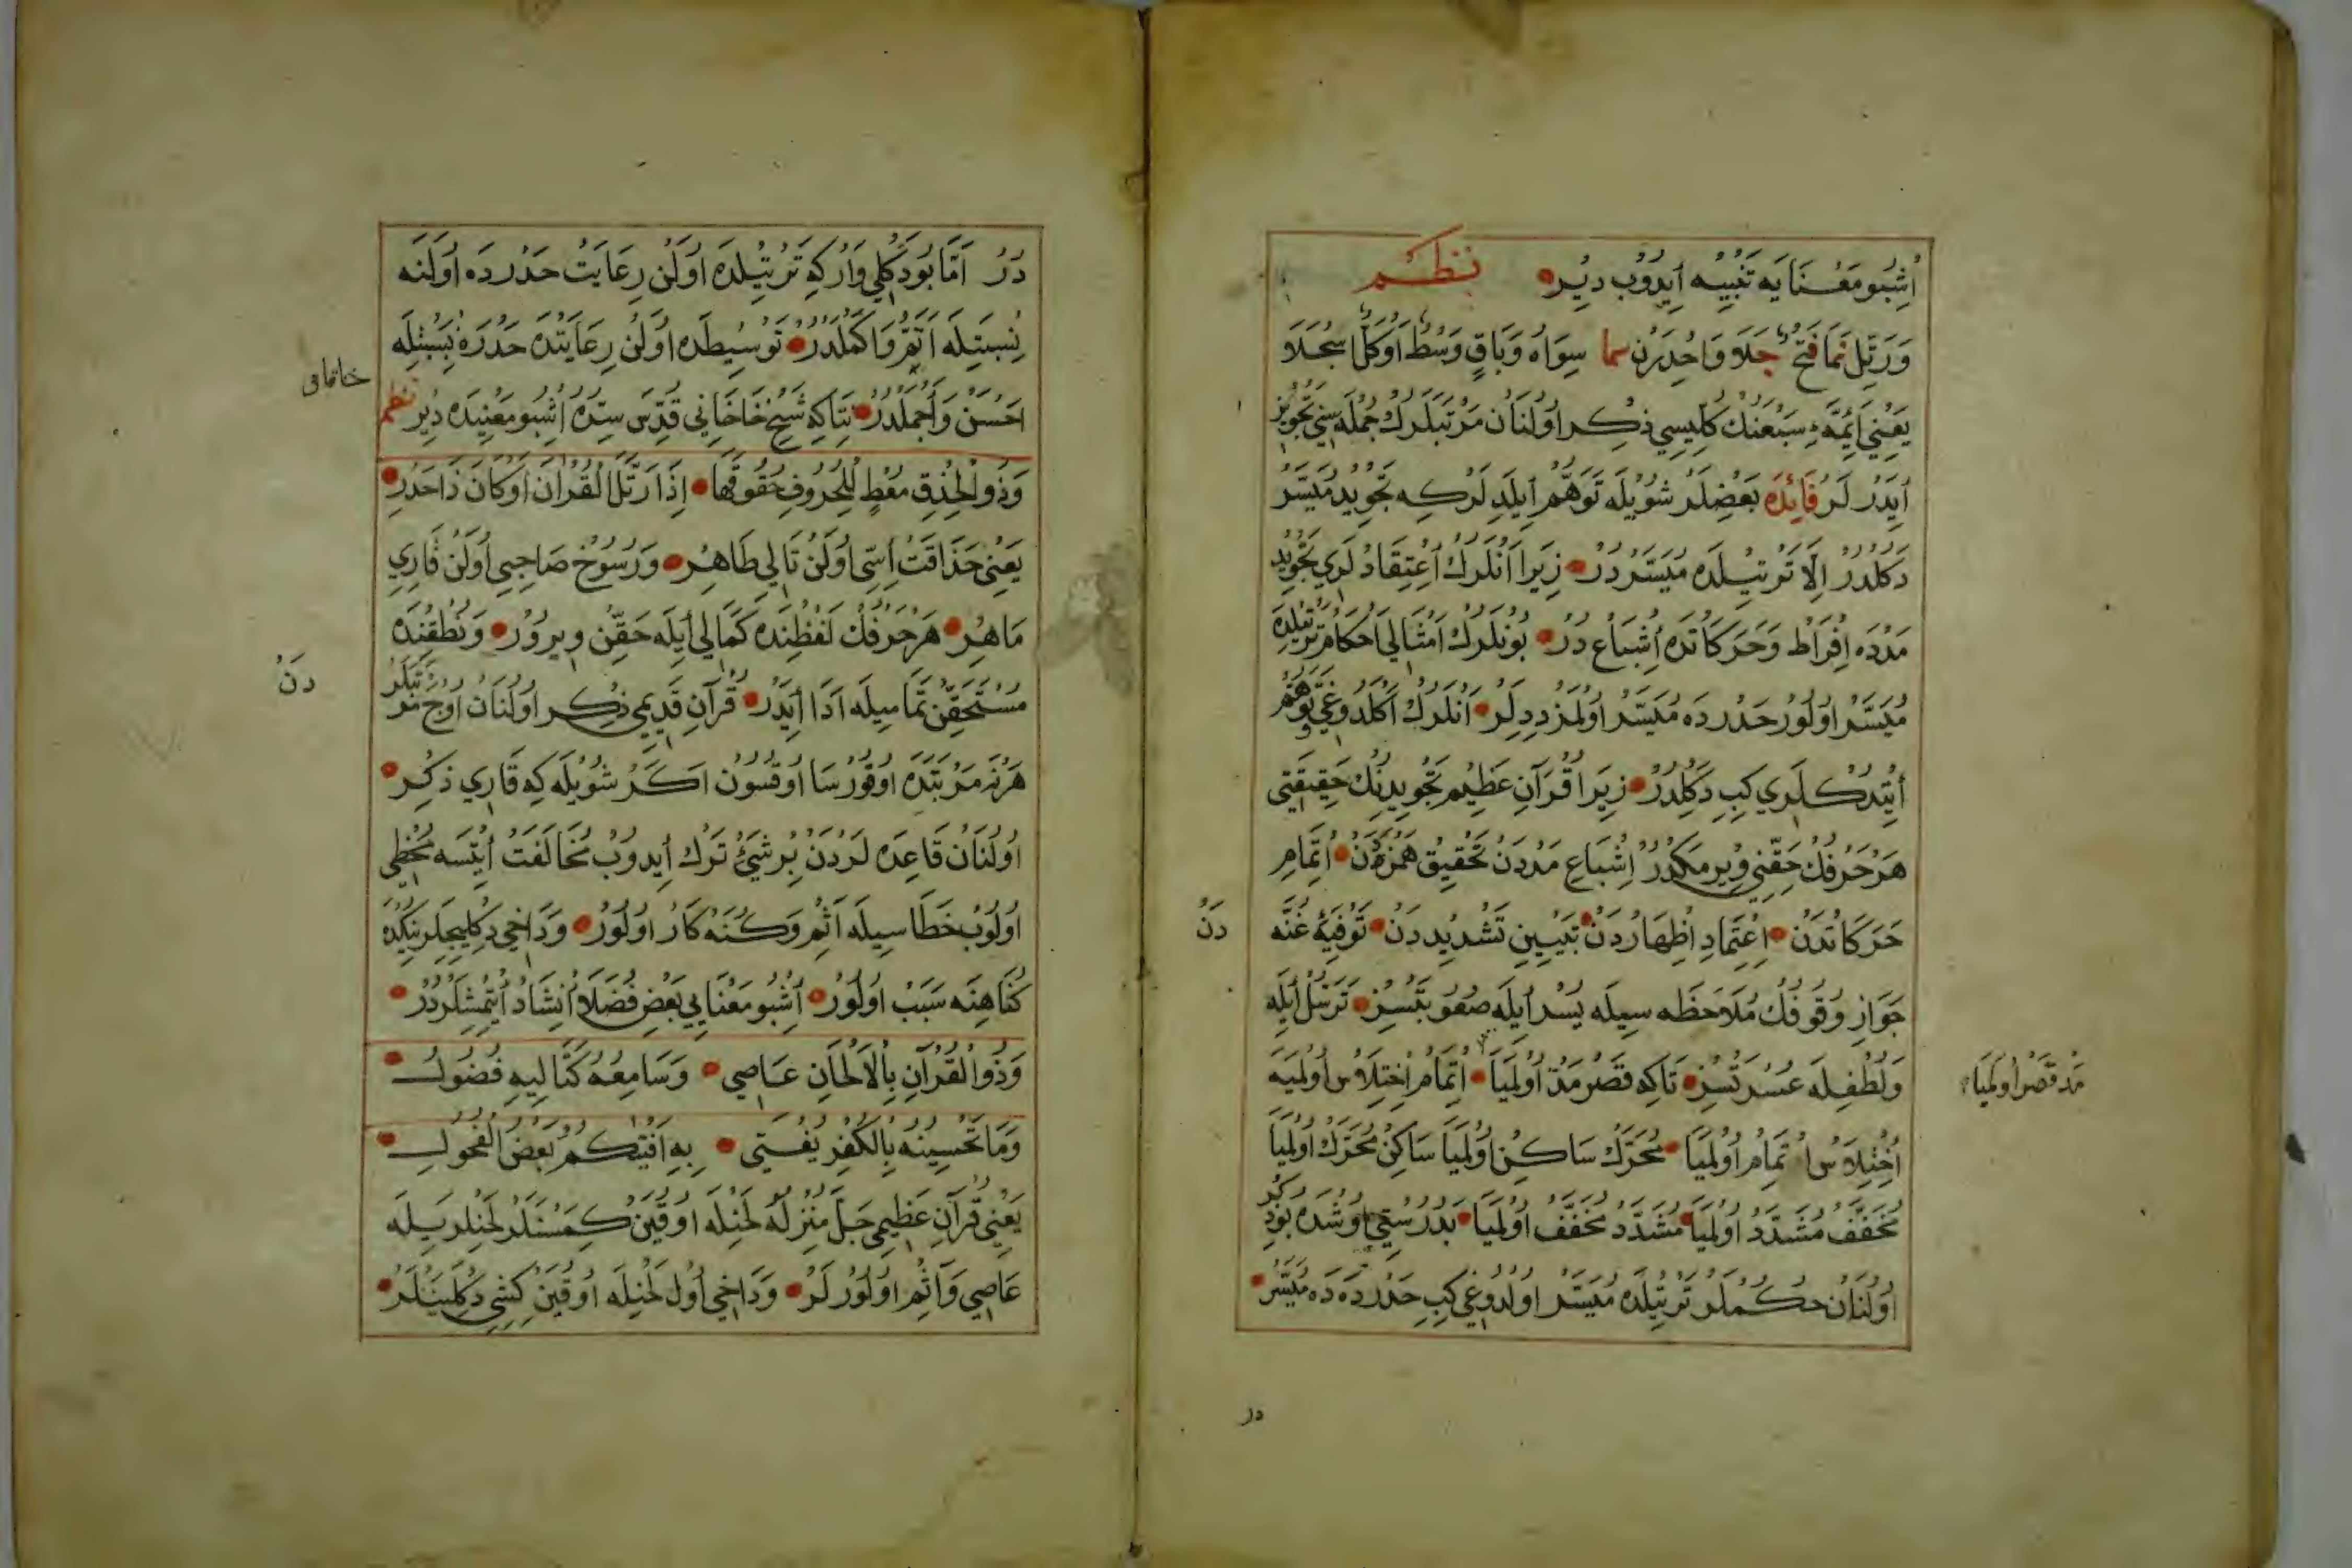 اُشِبُو مَعْنَايَه تَنْبِيْه اَيِدُوْبْ دِيْر نظم
وَرَتِّلْ نَمَا فَتْحٌ جَلَا وَاحْدِرَنْ سما سِوَاهُ وَبَاقٍ وَسْطٌ اَوْ كُلًّا سَجْلَا
يَعْنِي اَئِمَّۀِ سَبْعَنِكْ كُلِّيسِي ذِكْر اُولُنَانْ مَرْتَبَلَرِكْ جُمْلَه سِنِي تَجْوِيز
اَيْدَرْلَرْ فَائِدَه بَعْضِلَرْ شُوْيْلَه تَوَهُّم اَيْلَدِيلَرْكِه تَجْوِيد مُيَسَّر
دَكُلْدُرْ اِلَّا تَرْتِيلْدَه مُيَسَّرْدُرْ زِيَرا اَنْلَرِكْ اِعْتِقَادْلَرِي تَجْوِيد
مَدْدَه اِفْرَاطْ وَحَرَكَاتَدَه اِشْبَاع دُرْ بُونْلَرِكْ اَمْثَالِي اَحْكَام تَرْتِيلْدَه
مُيَسَّر اُولُورْ حَدْرْدَه مُيَسَّر اُولْمَزْ دِدِلَرْ اَنْلَرِكْ اَكْلَدُوغِي تَوَهُّم
اَيْتِدُكْلَرِي كِبِ دَكُلْدُرْ زِيَرا قُرْآنِ عَظِيْم تَجْوِيدِنِكْ حَقِيقَتِي
هَرْ حَرْفِكْ حَقِّنِي وِيرْمَكْدُرْ اِشْبَاعِ مَدْدَنْ تَحْقِيقِ هَمْزَه دَنْ اِتْمَامِ
حَرَكَاتْدَنْ اِعْتِمَادِ اِظْهَارْدَنْ تَبْيِينِ تَشْدِيدْدَنْ تَوْفِيَۀِ غُنَّه دَنْ
جَوَازِ وُقُوفِكْ مُلَاحَظَه سِيلَه يُسْر اَيْلَه صُعُوبَتْسِزْ تَرَسُّل اَيْلَه
وَلُطْفِلَه عُسْرَتْسِزْ تَاكِه قَصْر مَدّ اُولْمَيَا اِتْمَام اِخْتِلَاس اُولْمَيَه
مَدّ قَصْر اُولْمَيَا
اِخْتِلَاس اِتْمَام اُولْمَيَا مُحَرَّكْ سَاكِن اُولْمَيَا سَاكِنْ مُحَرَّكْ اُولْمَيَا
مُخَفَّفْ مُشَدَّدْ اُولْمَيَا مُشَدَّدْ مُخَفَّفْ اُولْمَيَا بَدُرُسْتِي اُوشْدَه بُو ذِكْر
اُولُنَانْ حُكُمْلَرْ تَرْتِيلْدَه مُيَسَّر اُولْدُوغِي كِبِ حَدْرْدَه دَه مُيَسَّرْ
در
دَرْ اَمَّا بُودَكْلِي وَارْكِه تَرْتِيلْدَه اُولَنْ رِعَايَتْ حَدْرْدَه اُولَنَه
نِسْبَتِيلَه اَتَمّ وَاَكْمَلْدُرْ تَوْسِيطْدَه اُولَنْ رِعَايَتْدَه حَدْرَه نِسْبَتِلَه
اَحْسَنْ وَاَجْمَلْدُرْ نِتَاكِه شَيْخ خَاخَانِي قُدِّسَ سِرُّه اُشِبُو مَعْنِيدَه دِيْر نظم
خاقانی
وَذُو الْحِذْقِ مُعْطٍ لِلْحُرُوفِ حُقُوقَهَا اِذَا رَتَّلَ الْقُرْآنَ اَوْ كَانَ ذَا حَدْرِ
يَعْنِي حَذَاقَتْ اِسِّي اُولَنْ تَالِي طَاهِرْ وَرُسُوخ صَاحِبِي اُولَنْ قَارِي
مَاهِرْ هَرْ حَرْفِكْ لَفْظِنْدَه كَمَالِي اَيْلَه حَقِّنْ وِيرُورْ وَنُطْقِنْدَه
مُسْتَحَقِّنْ تَمَامِيلَه اَدَا اَيْدَرْ قُرْآنِ قَدِيمِي ذِكْر اُولُنَانْ اُوچْ مَرْتَبَلَرْ دَنْ
هَرْنَه مَرْتَبَدَه اُوقُورْسَا اُوقُسُونْ اَكَرْ شُوْيْلَه كِه قَارِي ذِكِرْ
اُولُنَانْ قَاعِدَه لَرْدَنْ بِرْ شَيْئ تَرْك اَيِدُوبْ مُخَالَفَتْ اَيْتْسَه مُخْطِي
اُولُوبْ خَطَا سِيلَه آثِم وَكُنَهْكَارْ اُولُورْ وَدَاخِي دِكْلَيِجِيلَرِنِكْدَه
كُنَاهِنَه سَبَبْ اُولُورْ اُشِبُو مَعْنَايِي بَعْض فُضَلَا اِنْشَادْ اَيْتْمِشْلَرْدُرْ
وَذُو الْقُرْآنِ بِالْاَلْحَانِ عَاصِي وَسَامِعُهُ كَتَالِيهِ فُضُولُ
وَمَا تَحْسِينُهُ بِالْكُفْرِ يُفْتِي بِهِ اَفْتِيكُمْ بَعْضُ الْفُحُولِ
يَعْنِي قُرْآنِ عَظِيمِي جَلَّ مُنْزِلُهُ لَحْنِلَه اُوقِيَنْ كِمَسْنَلَرْ لَحْنِلَرِيلَه
عَاصِي وَآثِم اُولُورْلَرْ وَدَاخِي اُول لَحْنِلَه اُوقِيَنْ كِشِي دِكْلَيَنْلَرْ